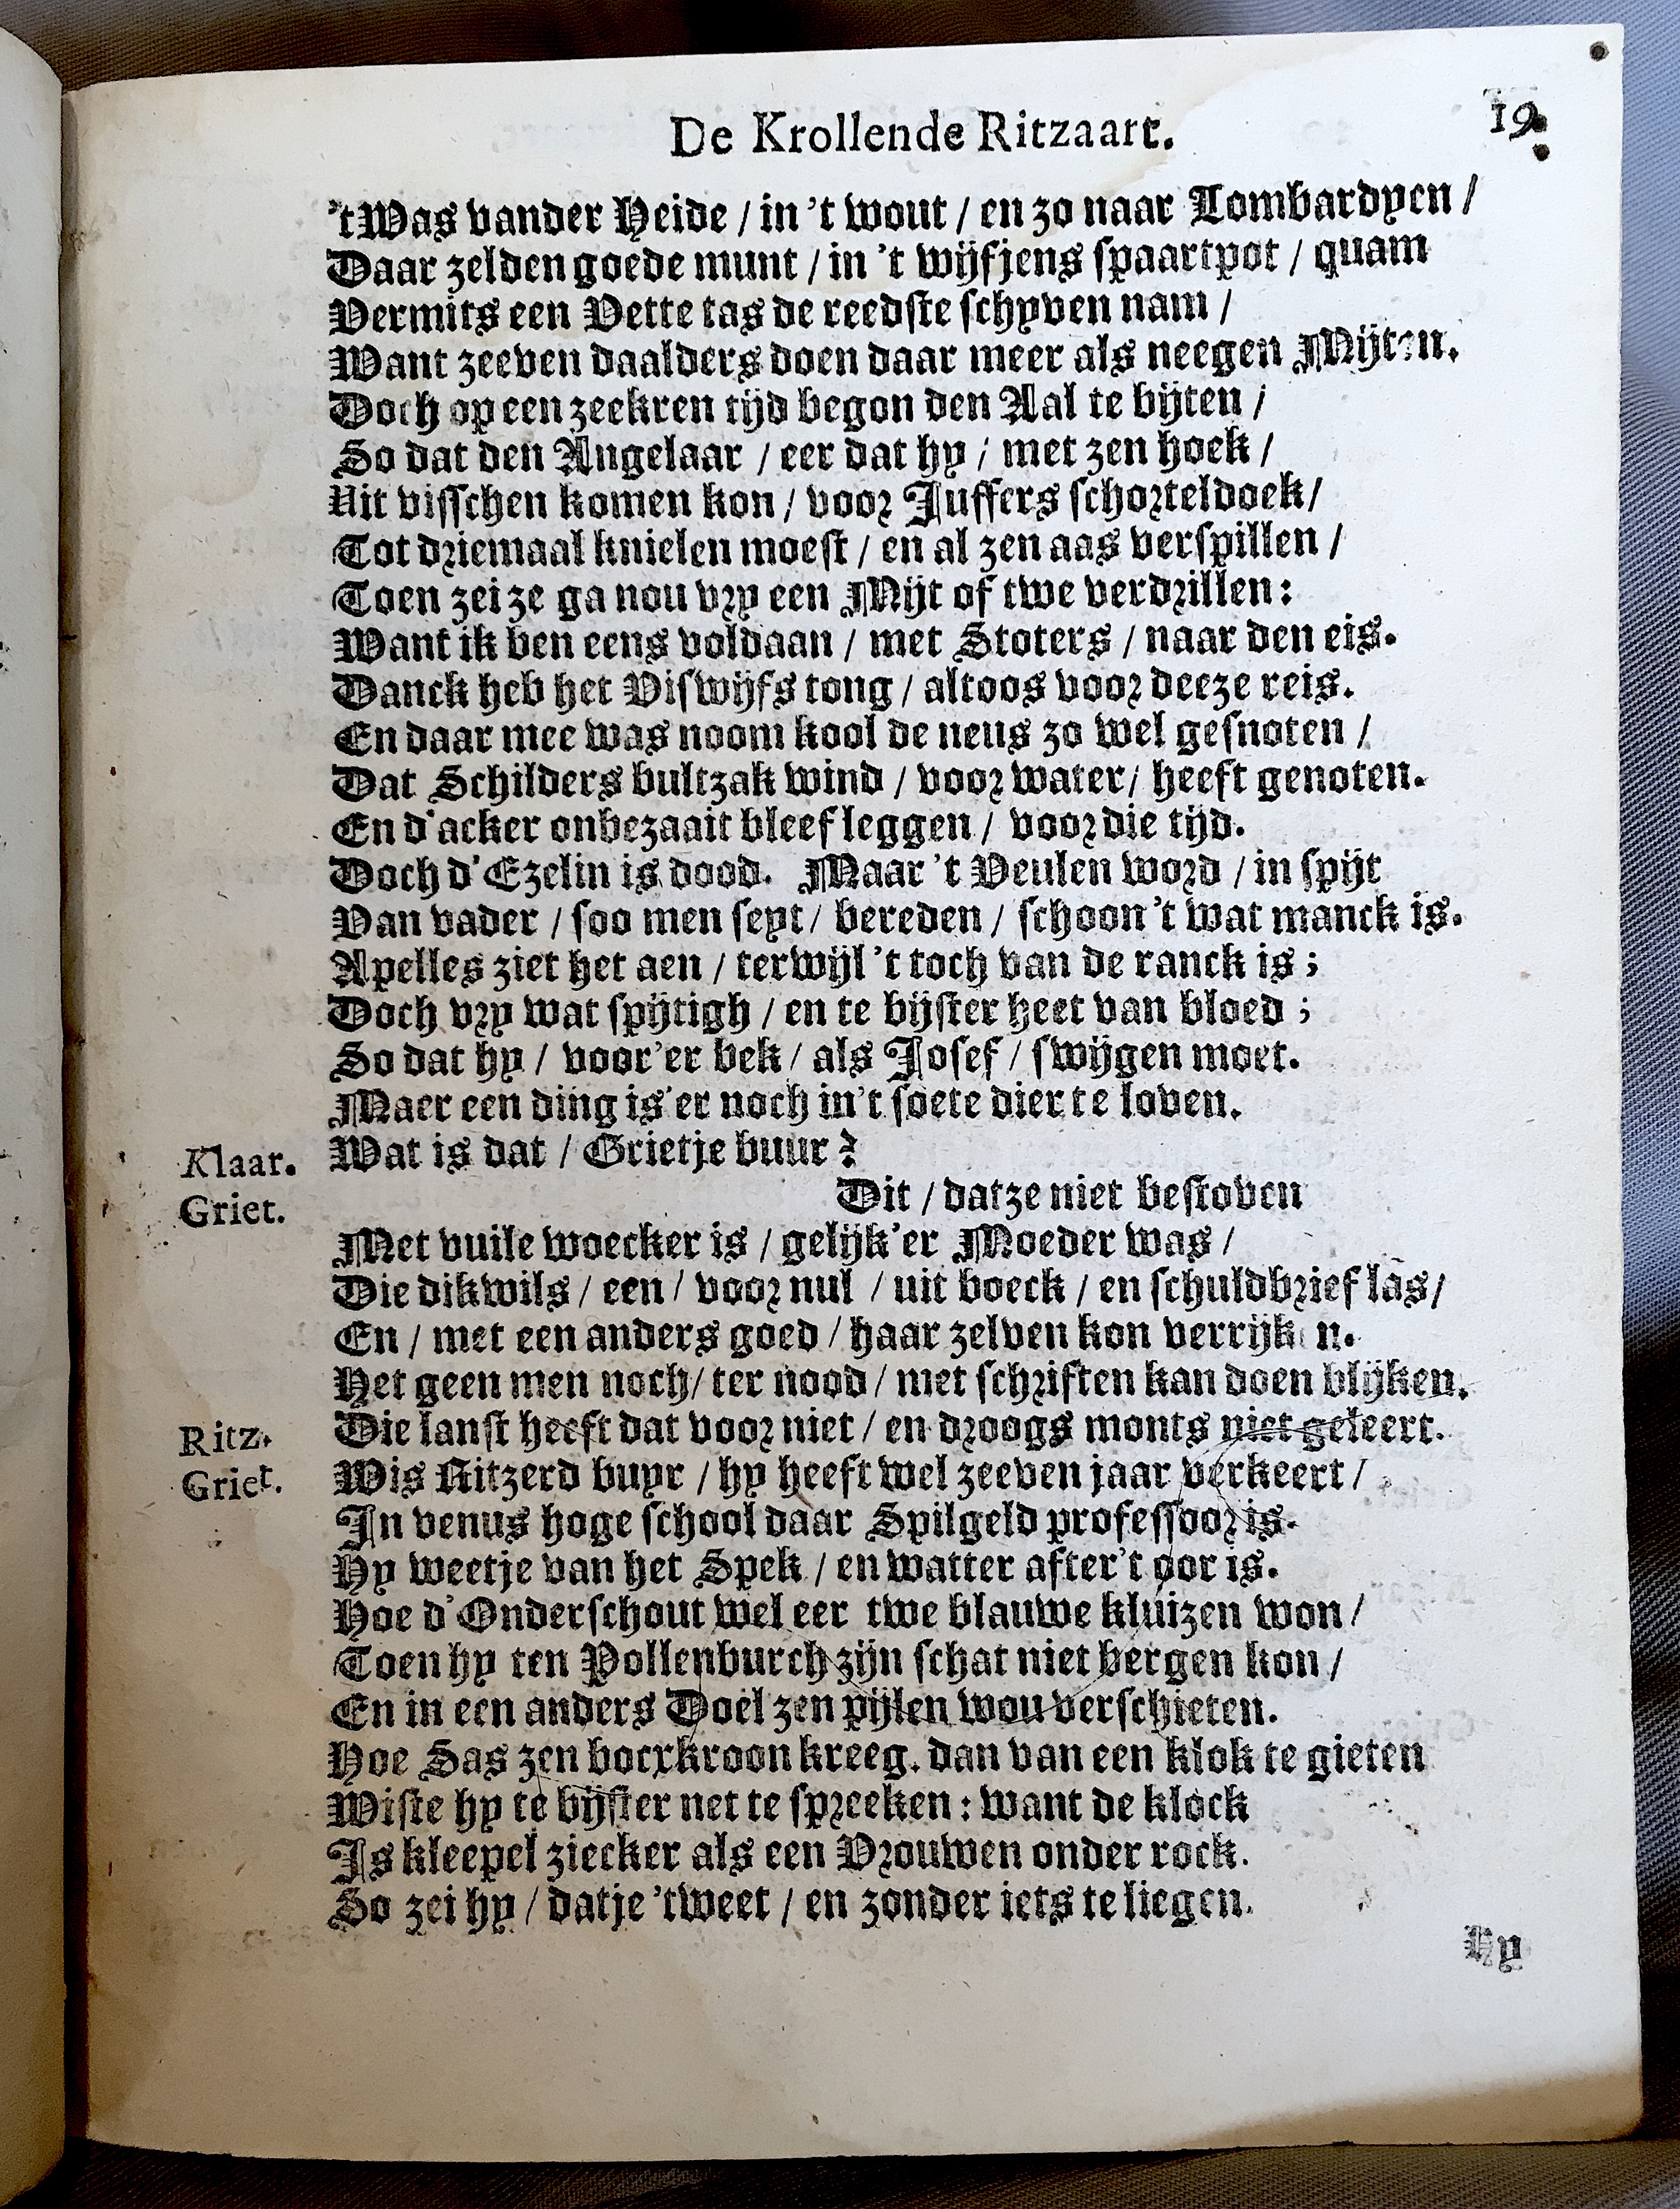 De Krollende Ritzaart. 19
't Was vander Heide / in 't wout / en zo naar Lombardyen /
Daar zelden goede munt / in 't wijfjens spaartpot / quam
Vermits een Vette tas de reedste schyven nam /
Want zeeven daalders doen daar meer als neegen Mijten.
Doch op een zeekren tijd begon den Aal te bijten /
So dat den Angelaar / eer dat hy / met zen hoek /
Uit visschen komen kon / voor Juffers schorteldoek /
Tot driemaal knielen moest / en al zen aas verspillen /
Toen zei ze ga nou vry een Mijt of twe verdrillen:
Want ik ben eens voldaan / met Stoters / naar den eis.
Danck heb het Viswijfs tong / altoos voor deeze reis.
En daar mee was noom kool de neus zo wel gesnoten /
Dat Schilders bultzak wind / voor water / heeft genoten.
En d'acker onbezaait bleef leggen / voor die tijd.
Doch d'Ezelin is dood. Maar 't Veulen word / in spijt
Van vader / soo men seyt / bereden / schoon 't wat manck is.
Apelles ziet het aen / terwijl 't toch van de ranck is ;
Doch vry wat spijtigh / en te bijster heet van bloed ;
So dat hy / voor'er bek / als Josef / swijgen moet.
Maer een ding is'er noch in't soete dier te loven.
Klaar. Wat is dat / Grietje buur ?
Griet. Dit / datze niet bestoven
Met vuile woecker is / gelijk'er Moeder was /
Die dikwils / een / voor nul / uit boeck / en schuldbrief las /
En / met een anders goed / haar zelven kon verrijken.
Het geen men noch / ter nood / met schriften kan doen blijken.
Ritz. Die lanst heeft dat voor niet / en droogs monts niet geleert.
Griet. Wis Ritzerd buyr / hy heeft wel zeeven jaar verkeert /
In venus hoge school daar Spilgeld professoor is.
Hy weetje van het Spek / en watter after't oor is.
Hoe d'Onderschout wel eer twe blauwe kluizen won /
Toen hy ten Pollenburch zijn schat niet bergen kon /
En in een anders Doel zen pijlen wou verschieten.
Hoe Sas zen bocxkroon kreeg. dan van een klok te gieten
Wiste hy te bijster net te spreeken : want de klock
Is kleepel ziecker als een Vrouwen onder rock.
So zei hy / datje 'tweet / en zonder iets te liegen.
Hy